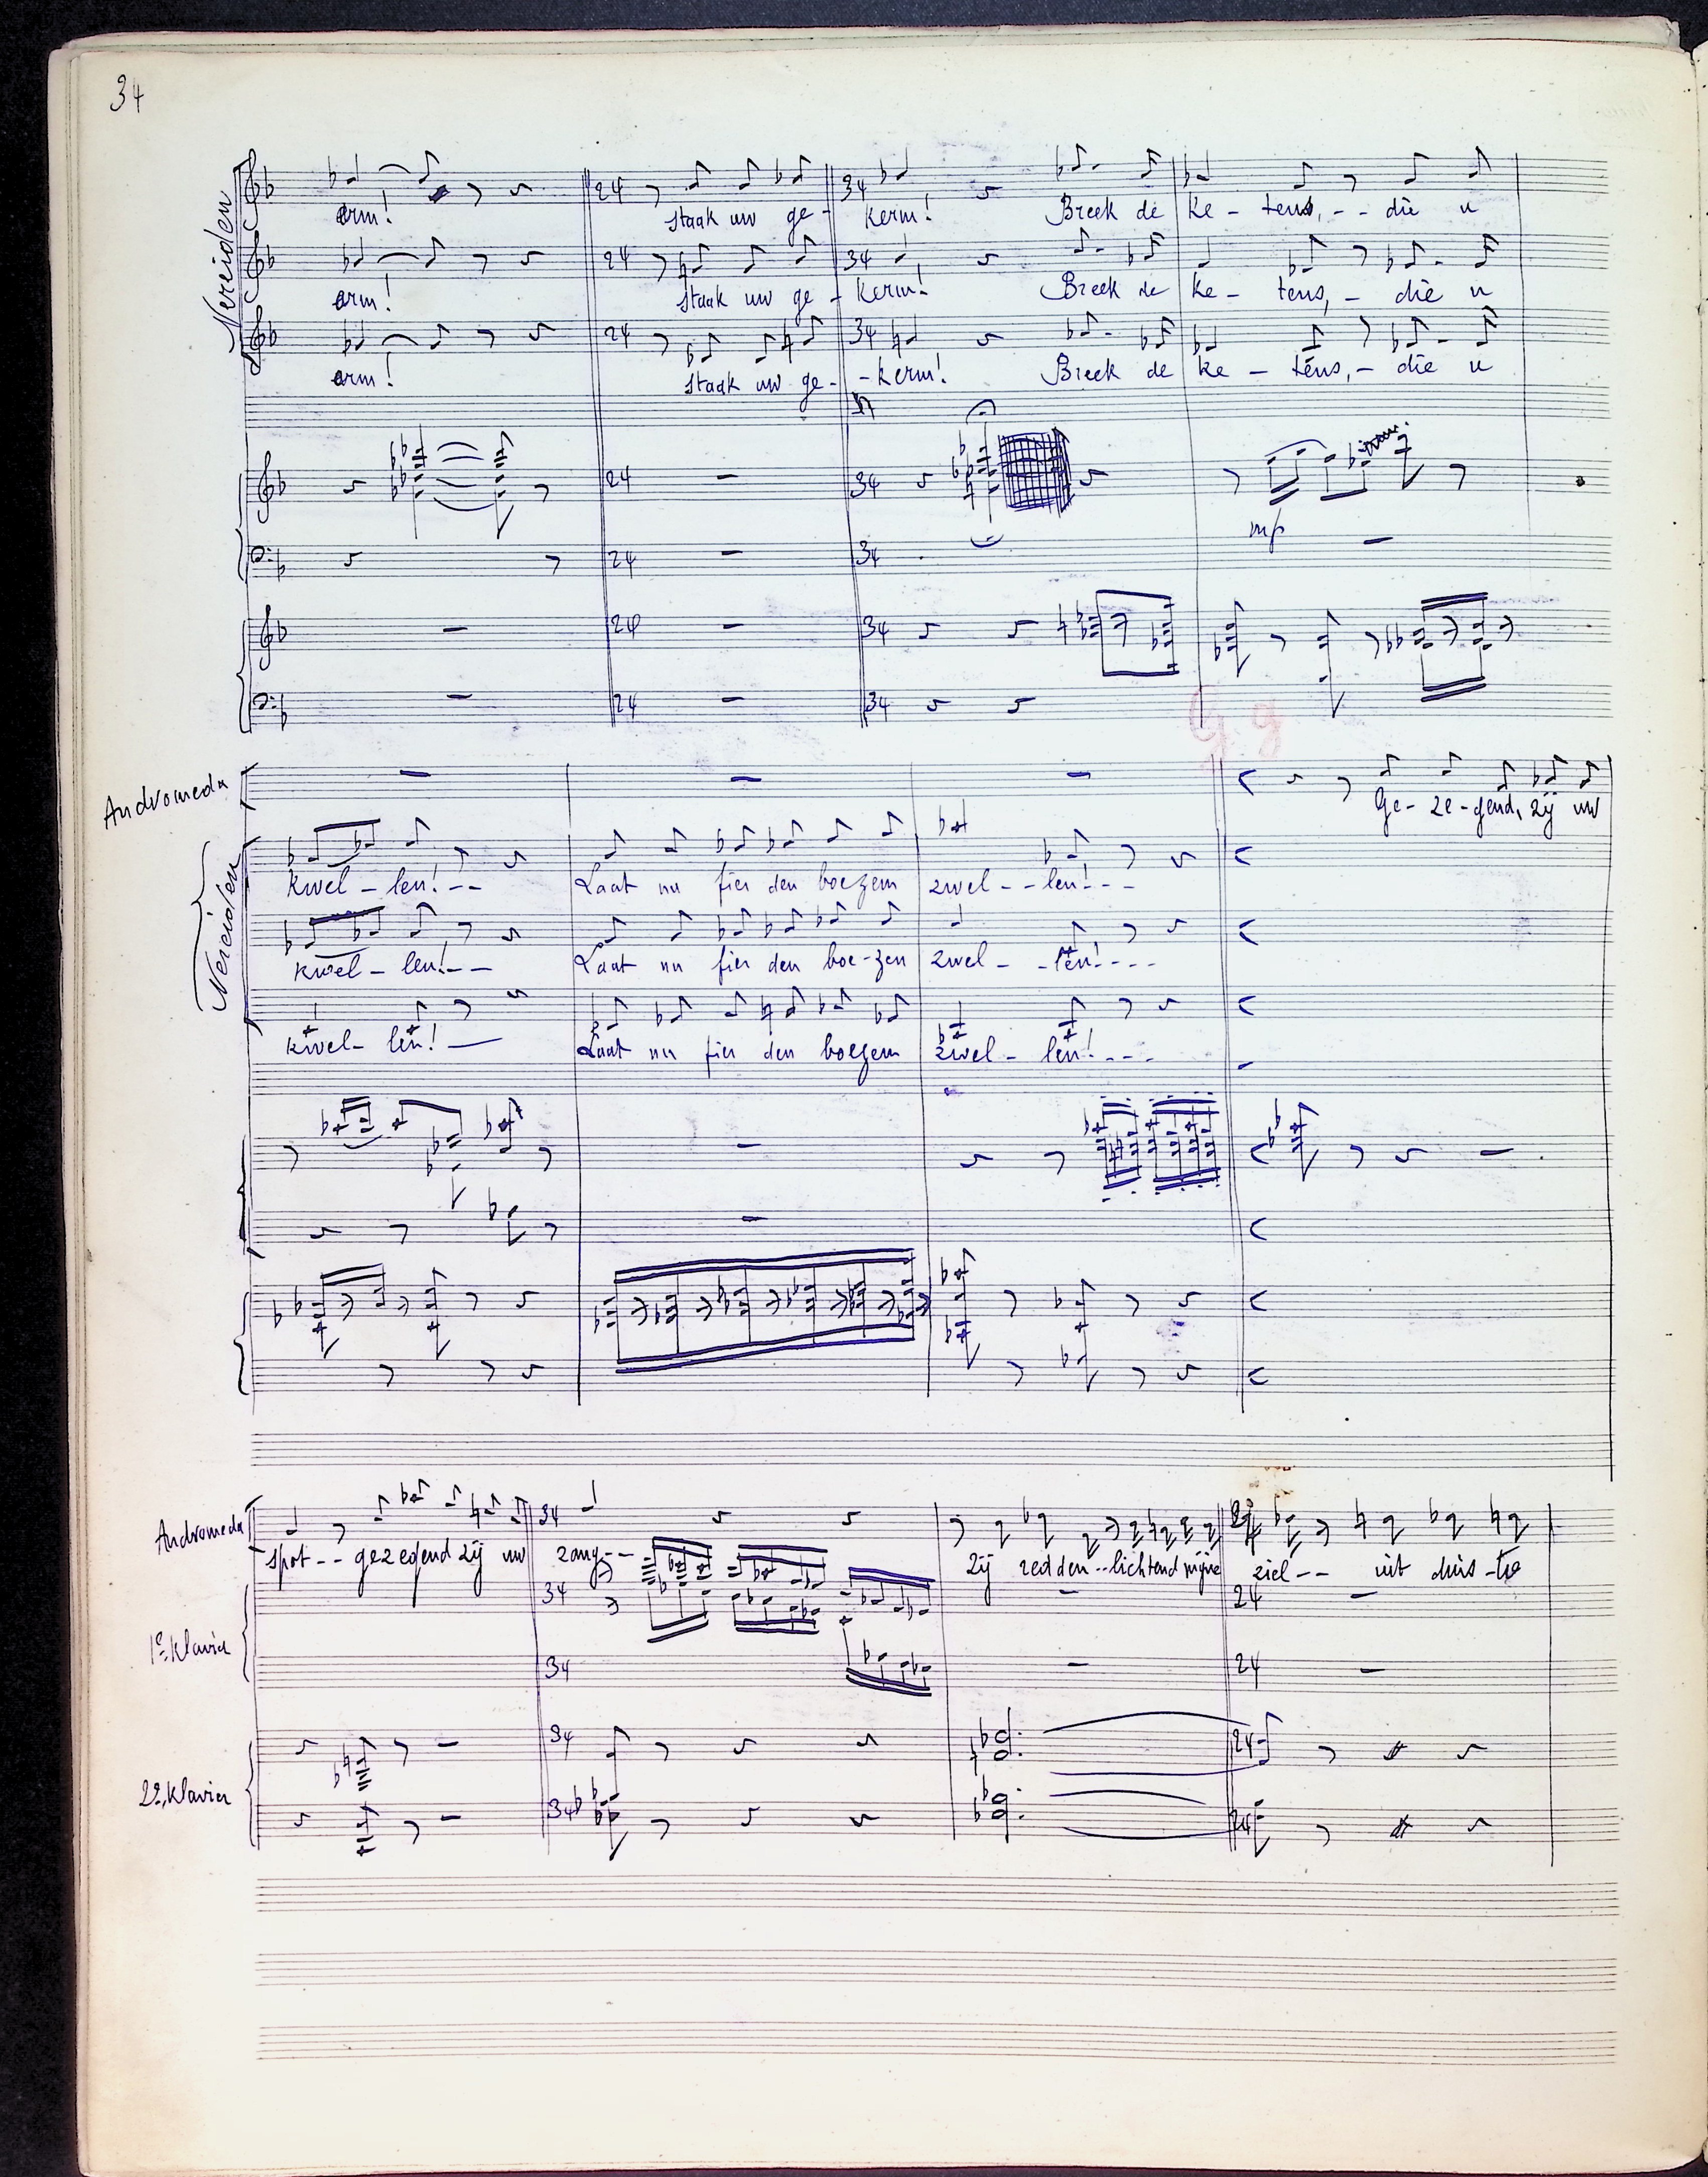 34
Nereiden
erm! staak uw ge- kerm! Breek de ke - tens, - - die u
erm! staak uw ge - kerm! Breek de ke - tens, - die u
erm! staak uw ge - - kerm! Breek de ke - tens, - die u
mp
G g
Andromeda
Ge - ze - gend, zij uw
Nereiden
kwel - len! - - Laat nu fier den boezem zwel - - len! - - -
kwel - len! - - Laat nu fier den boe - zen zwel - - len! - - -
kwel - len! — Laat nu fier den boezem zwel - len! - - -
Andromeda
spot - - gezegend zij uw zang - - zij redden - - lichtend mijne ziel - - uit duis - tre
1e Klavier
2e Klavier